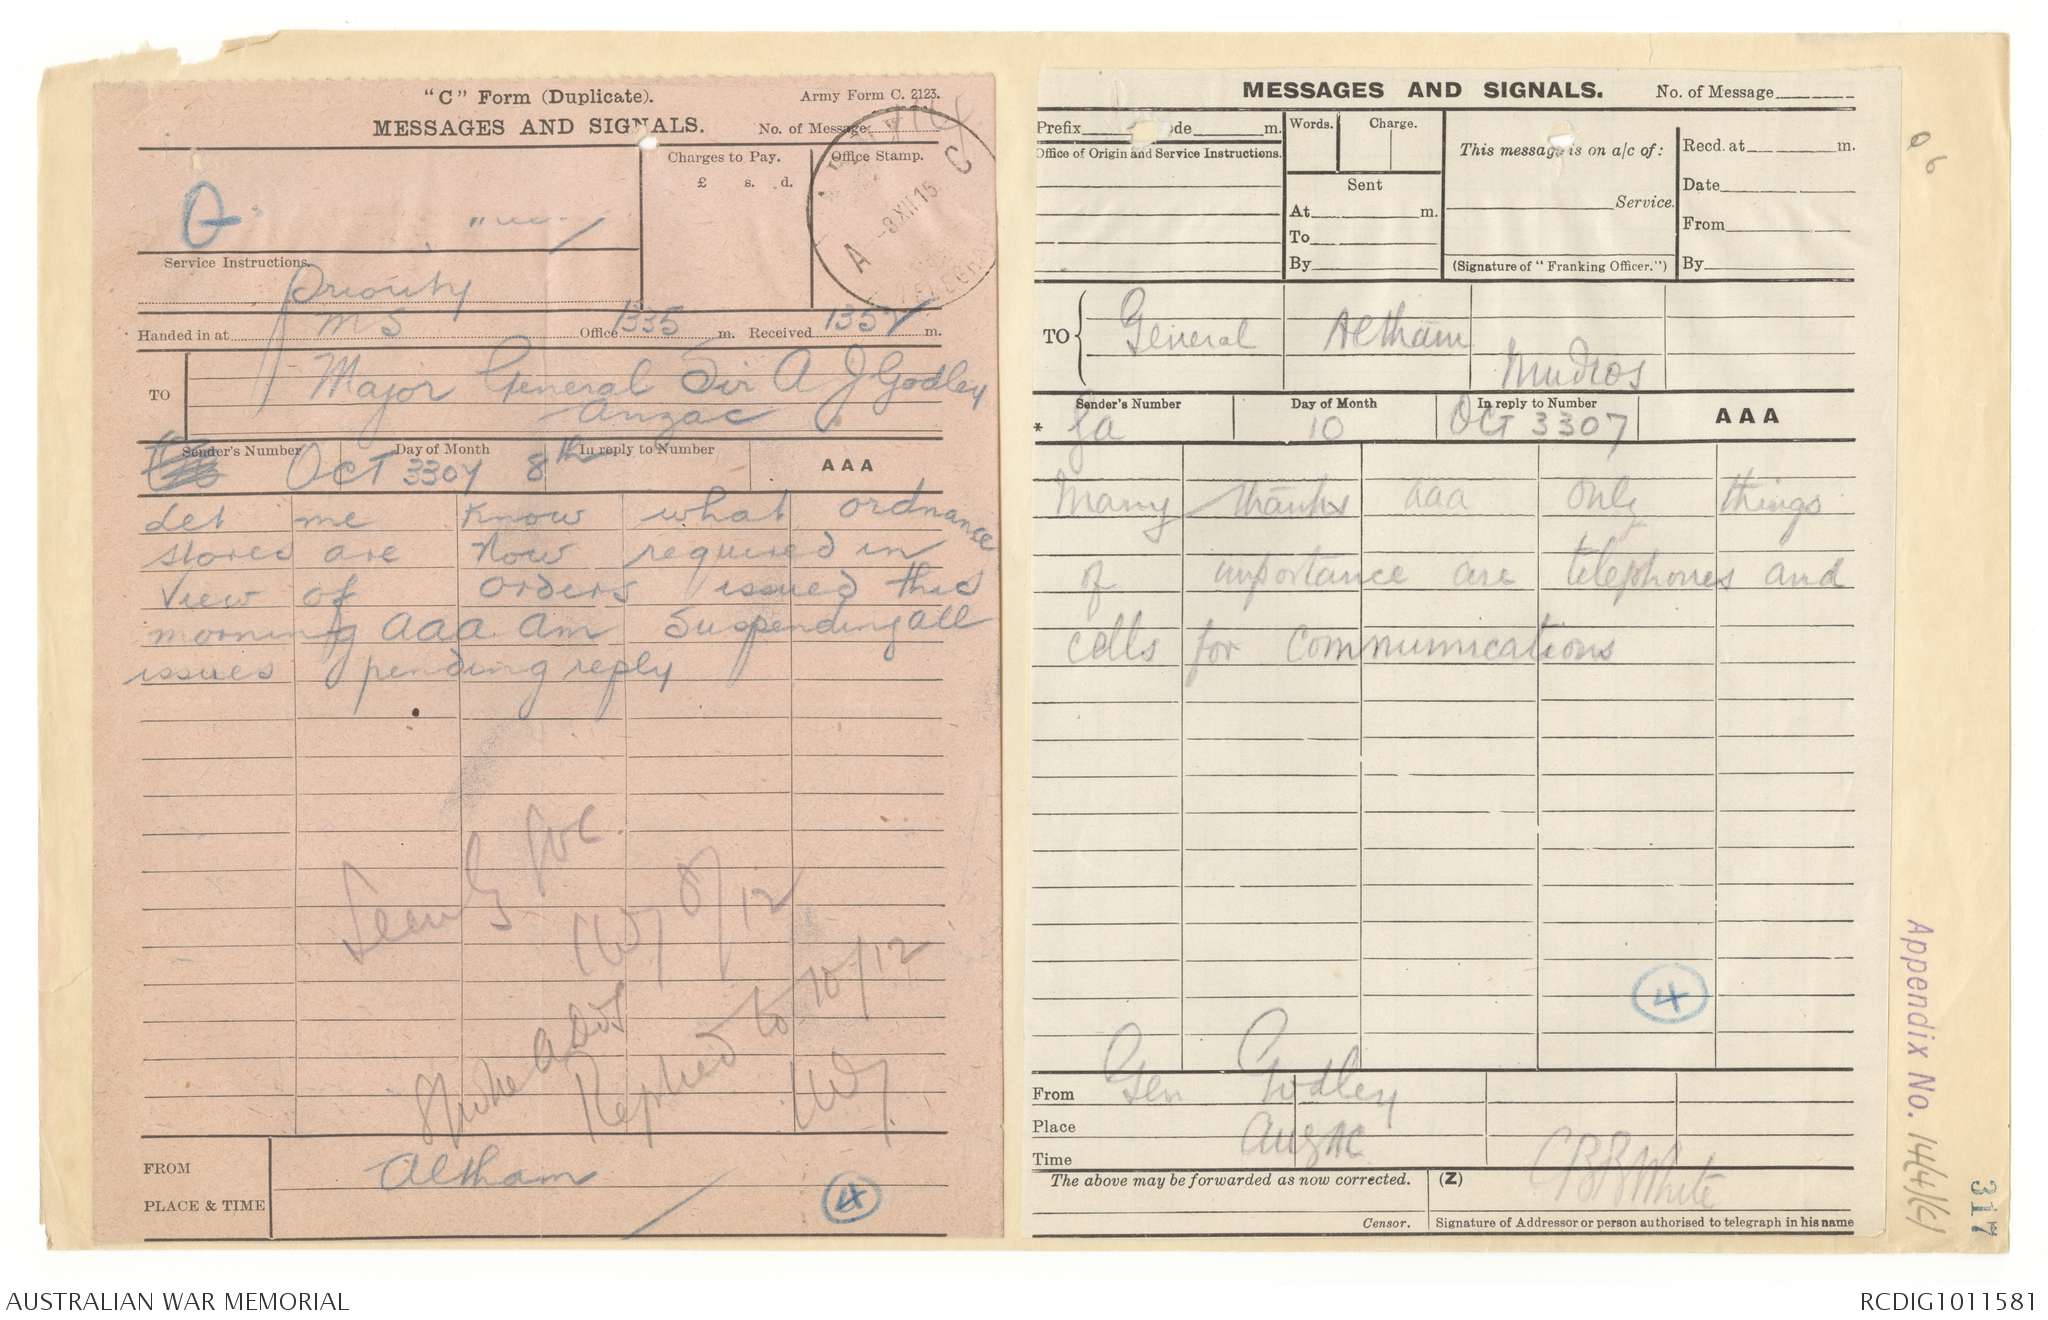 "C" Form (Duplicate).
Army Form C. 2123.
MESSAGES AND SIGNALS.
No. of Message
Charges to Pay.
£ s. d.
Office Stamp.
A C
8 XII 15
G
Service Instructions.
Priority
Handed in at MS Office 1335 m. Received 1352 m.
TO
Major General Sir A J Godley
Anzac
Sender's Number
Day of Month
In reply to Number
AAA
OCT 3307 8th
Let me know what ordnance
stores are now required in
view of orders issued this
morning aaa am suspending all
issues pending reply
Seen by GOC
CBW 8/12
Replied to 10/12
FROM
Altham
PLACE & TIME
4
MESSAGES AND SIGNALS.
No. of Message
Prefix Code m.
Office of Origin and Service Instructions.
Words.
Charge.
Sent
At m.
To
By
This message is on a/c of:
Service.
(Signature of "Franking Officer.")
Recd. at m.
Date
From
By
TO
General Altham
Mudros
Sender's Number
Day of Month
In reply to Number
AAA
* Ga 10 OCT 3307
Many thanks aaa only things
of importance are telephones and
cells for communications
4
From Gen Godley
Place Anzac
Time
The above may be forwarded as now corrected.
(Z)
CBBWhite
Censor.
Signature of Addressor or person authorised to telegraph in his name
Appendix No. 14(4)(c)
317
AUSTRALIAN WAR MEMORIAL
RCDIG1011581